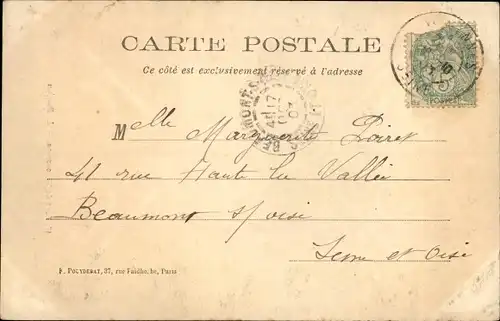 CARTE POSTALE
Ce côté est exclusivement réservé à l'adresse
Melle Marguerite Poiret
41 rue Haute la Vallée
Beaumont s/ oise
Seine et Oise
F. POLYDEBAT, 37, rue Faidherbe, Paris